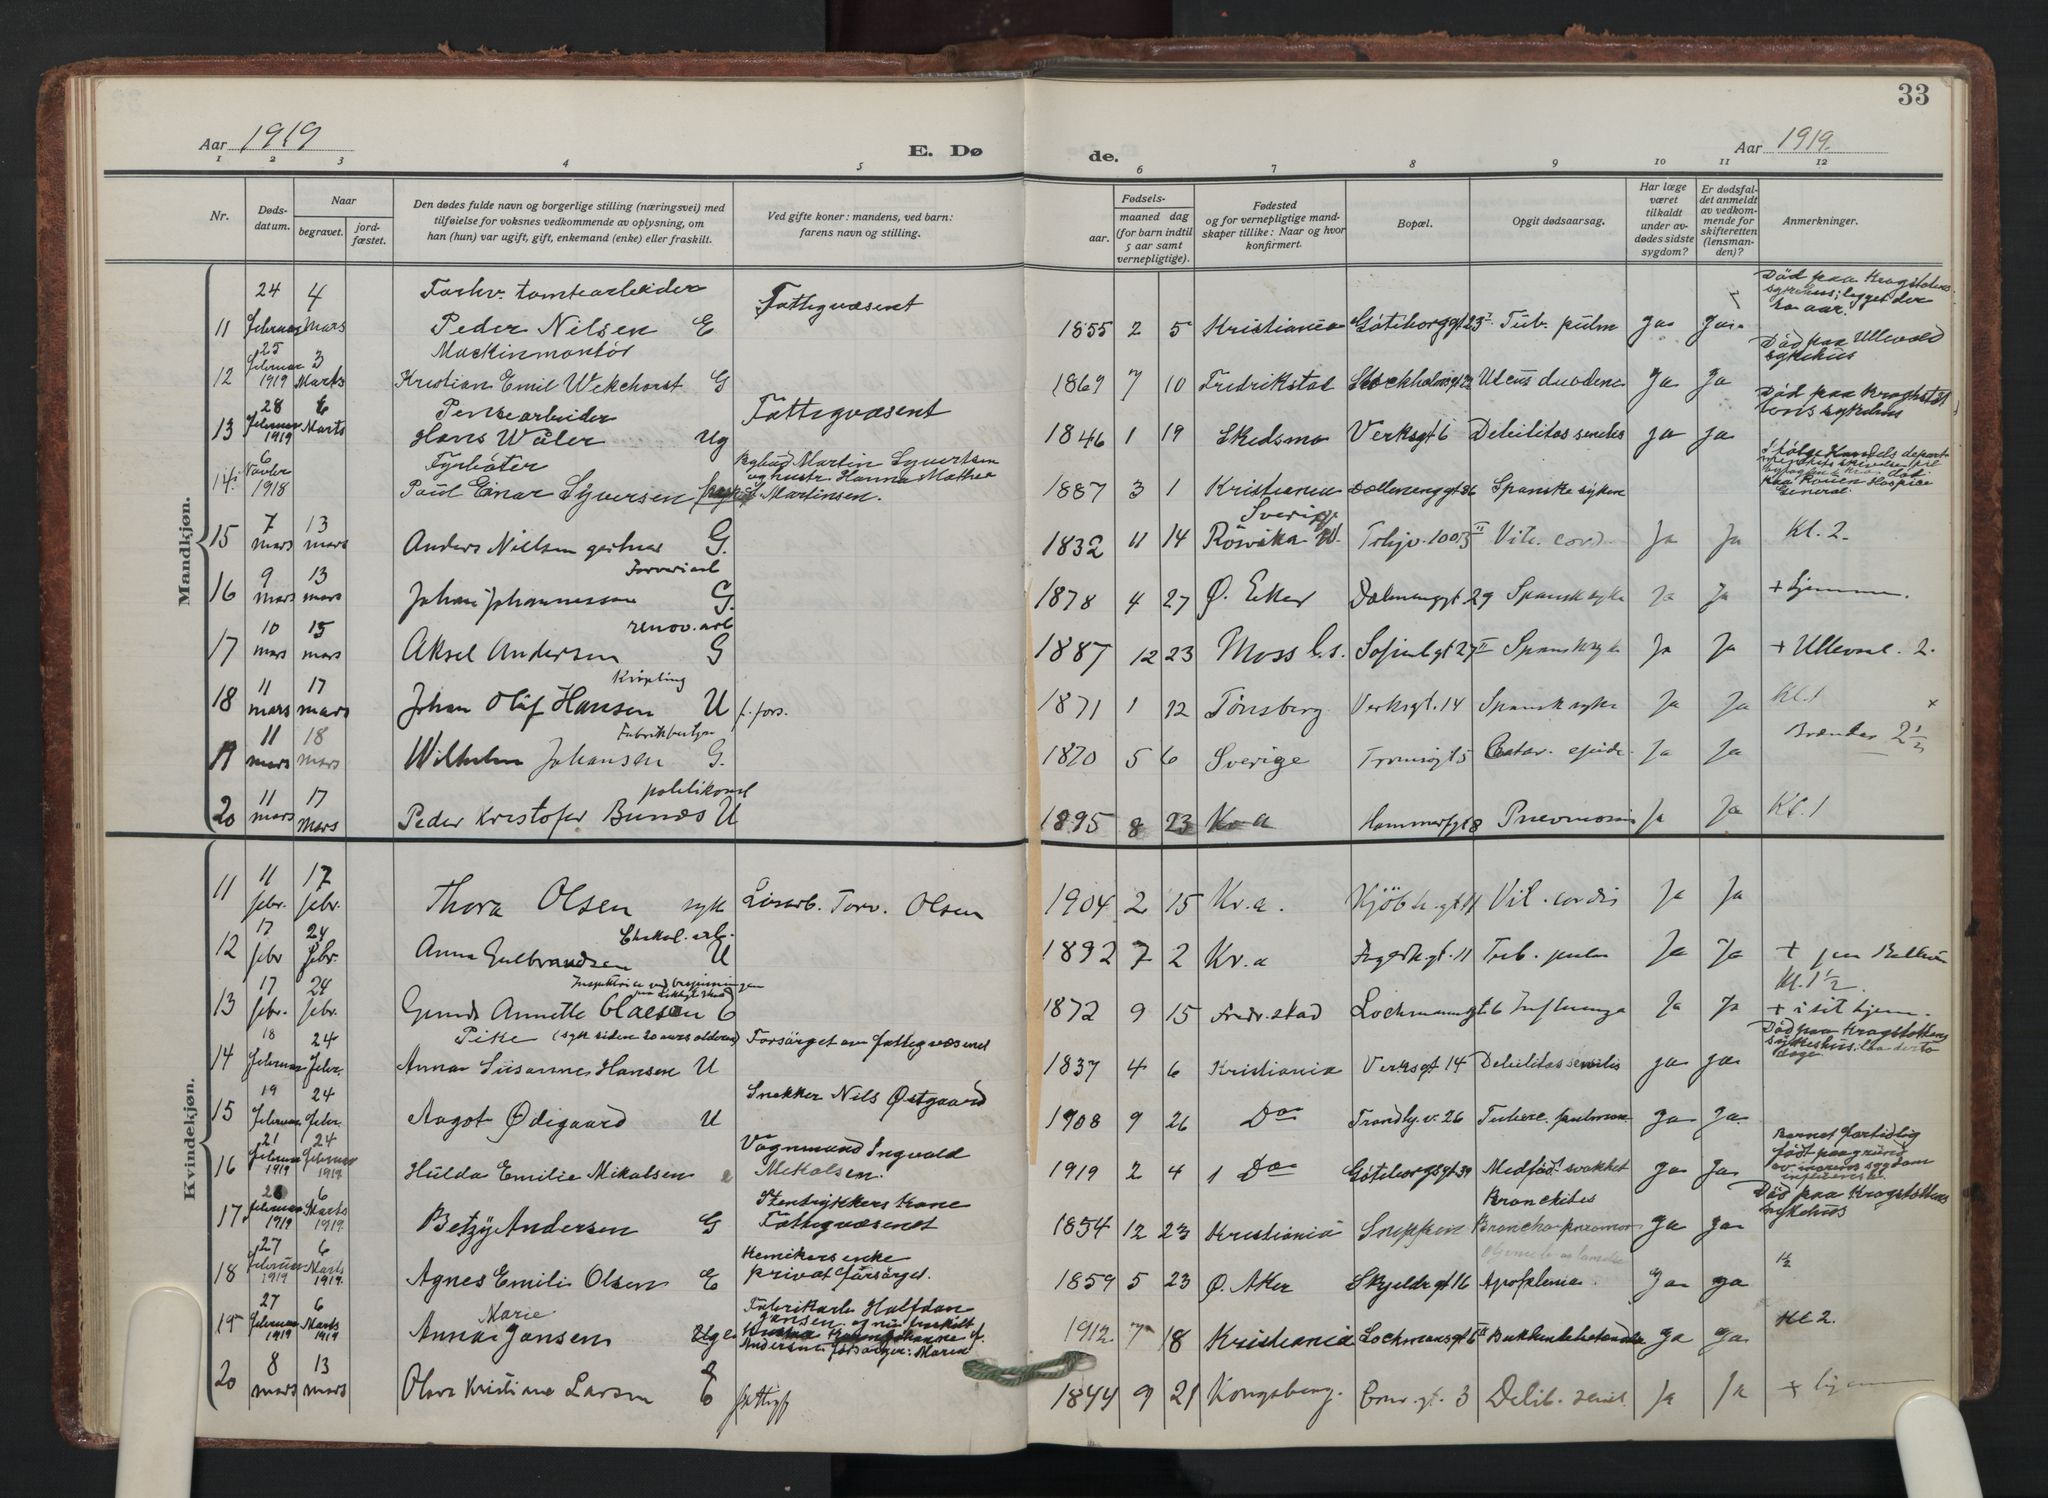 33
Aar 1919
E. Dø
de.
Aar 1919.
1 2 3 4 5 6 7 8 9 10 11 12
Nr.
Døds-
datum.
Naar
begravet.
jord-
fæstet.
Den dødes fulde navn og borgerlige stilling (næringsvei) med
tilføielse for voksnes vedkommende av oplysning, om
han (hun) var ugift, gift, enkemand (enke) eller fraskilt.
Ved gifte koner: mandens, ved barn:
farens navn og stilling.
Fødsels-
aar.
maaned dag
(for barn indtil
5 aar samt
vernepligtige).
Fødested
og for vernepligtige mand-
skaper tillike: Naar og hvor
konfirmert.
Bopæl.
Opgit dødsaarsag.
Har læge
været
tilkaldt
under av-
dødes sidste
sygdom?
Er dødsfal-
det anmeldt
av vedkom-
mende for
skifteretten
(lensman-
den)?
Anmerkninger.
Mandkjøn.
24 4 Forhv. tomtearbeider Fattigvæsenet Død paa Kragstøtens
sykehus; legget der
11 Februar Mars Peder Nilsen E 1855 2 5 Kristiania Göteborggt 23 Tub. pulm ja ja aar.
25 Maskinmontør Død paa Ullevaal
sykehus
12 Februar 1919 3 Marts Kristian Emil Wekhorst G 1869 7 10 Fredrikstad Stockholmsgt Ulcus duodeni ja ja
28 6 Fattigvæsent Død paa Kraghstøt
tens sykehus
13 Februar 1919 Marts Hans Wåler Ug 1846 1 19 Skedsmo Verksgt 6 Debilitas senilis ja ja
6 Fyrbøter Martin Syvertsen
og hustr. Hanna Mathea
14 Novbr 1918 Paul Einar Syversen Martinsen. 1887 3 1 Kristiania Dælenenggt 36 Spanske syken
paa Rouen Hospice
General.
15 7 mars 13 mars Anders Nilsen gartner G. 1832 11 14 Sverige Trhjv. 100 Vit. cord. Ja Ja Kl. 2.
16 9 mars 13 mars Johan Johannesen G. 1878 4 27 Ø. Eker Dælenenggt 29 Spansk syke Ja Ja + hjemme.
17 10 mars 15 mars Aksel Andersen renov. arb G 1887 12 23 Moss l.s. Sofienbgt 27 II Spansk syke Ja Ja + Ullevaal. 2.
18 11 mars 17 mars Johan Olaf Hansen Krøpling U f. fors. 1871 1 12 Tønsberg Verksgt. 14 Spansk syke Ja Ja Kl. 1 x
19 11 mars 18 mars Wilhelm Johansen G. 1870 5 6 Sverige Tromsøgt 5 Ja Ja Brændes 2 1/2
20 11 mars 17 mars Peder Kristofer Bunæs politikonst U 1895 8 23 Kr a Hammerfgt 8 Pnevmoni Ja Ja Kl. 1
Kvindekjøn.
11 11 febr. 17 febr. Thora Olsen syk Losarb. Torv. Olsen 1904 2 15 Kr. a. Kjöbh. gt Vit. cordis Ja Ja
12 17 febr 24 febr. Anna Gulbrandsen Chokol. arb. U 1892 7 2 Kr. a Fagerh. gt. 11 Tub. pulm Ja Ja +
Kl. 1 1/2.
13 17 febr. 24 febr. Annette Olaesen E 1872 9 15 Fredr. stad Lochmannsgt 6 Influensa Ja Ja + i sit hjem.
18 24 Pike (syk siden 20 aars alderen) Forsørget av fattigvæsenet Død paa Kragstøttens
sykkeshus. laa der to
dage
14 Februar Febr. Anna Susanne Hansen U 1837 4 6 Kristiania Verksgt 14 Debilitas senilis ja ja
19 24 Snekker Nils Østgaard
15 Februar Febr. Aagot Ødigaard U 1908 9 26 Do Trondhj. v. 26 Tuberc. pulmon. ja ja
21 24 Vognmand Ingvald Barnet fortidlig
født paa grund
av morens sygdom
influensa
16 Februar 1919 Februar 1919 Hulda Emilie Mikalsen Mikalsen. 1919 2 4 1 Do Göteborgsgt 39 Medfødt svakhet ja ja
6 Stentrykkers kone Bronchites Død paa Kragstøttens
sykehus
17 Februar 1919 Marts 1919. Betzy Andersen G Fattigvæsenet 1854 12 23 Kristiania Broncho pneumoni ja ja
27 6 Kemikers enke 1/2
18 Februar 1919 Marts 1919. Agnes Emilie Olsen E privat forsørget. 1859 5 23 Ø. Aker Skjeldr. gt 16 Apoplexia. Ja ja
27 6 Marie Fabrikarb Halfdan
Jansen og nu fraskilt
19 Februar 1919 Marts 1919 Anna Jansen Andersen forsørger: Maria 1912 7 18 Kristiania Lochmansgt 6 ja ja Kl 2.
20 8 mars 13 mars Olava Kristine Larsen E fattigf 1844 9 21 Kongsberg. gt. 3 Debil. senil. Ja Ja + hjemme